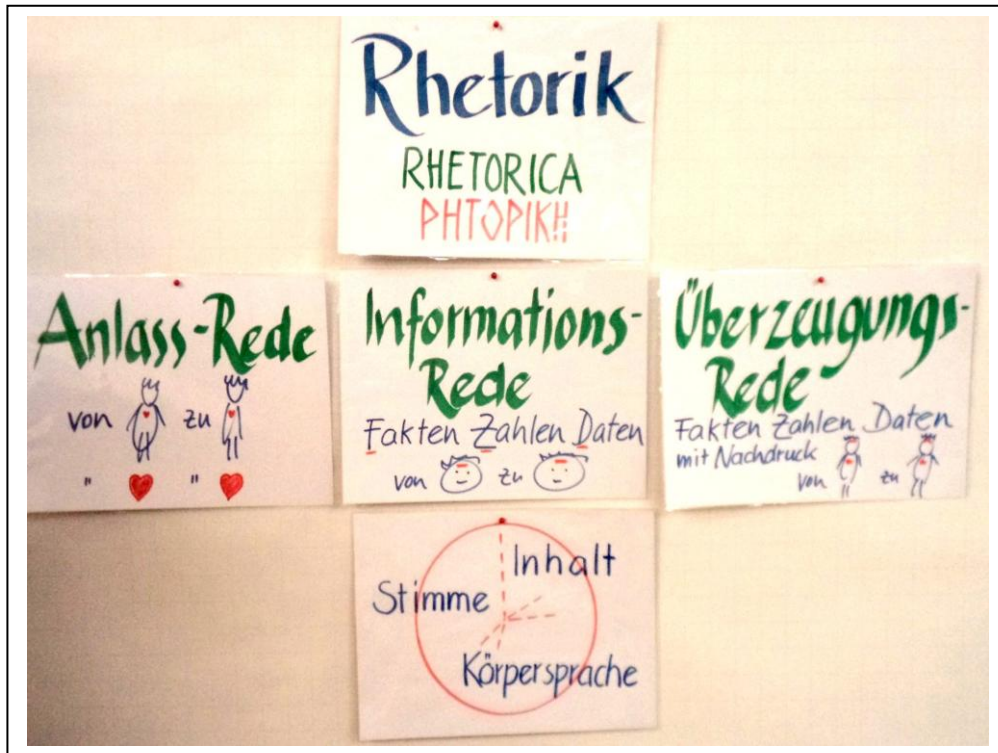 Rhetorik
RHETORICA
ΡΗΤΟΡΙΚΗ!
Anlass-Rede
von zu
" "
Informations-
Rede
Fakten Zahlen Daten
von zu
Überzeugungs-
Rede
Fakten Zahlen Daten
mit Nachdruck
von zu
Inhalt
Stimme
Körpersprache